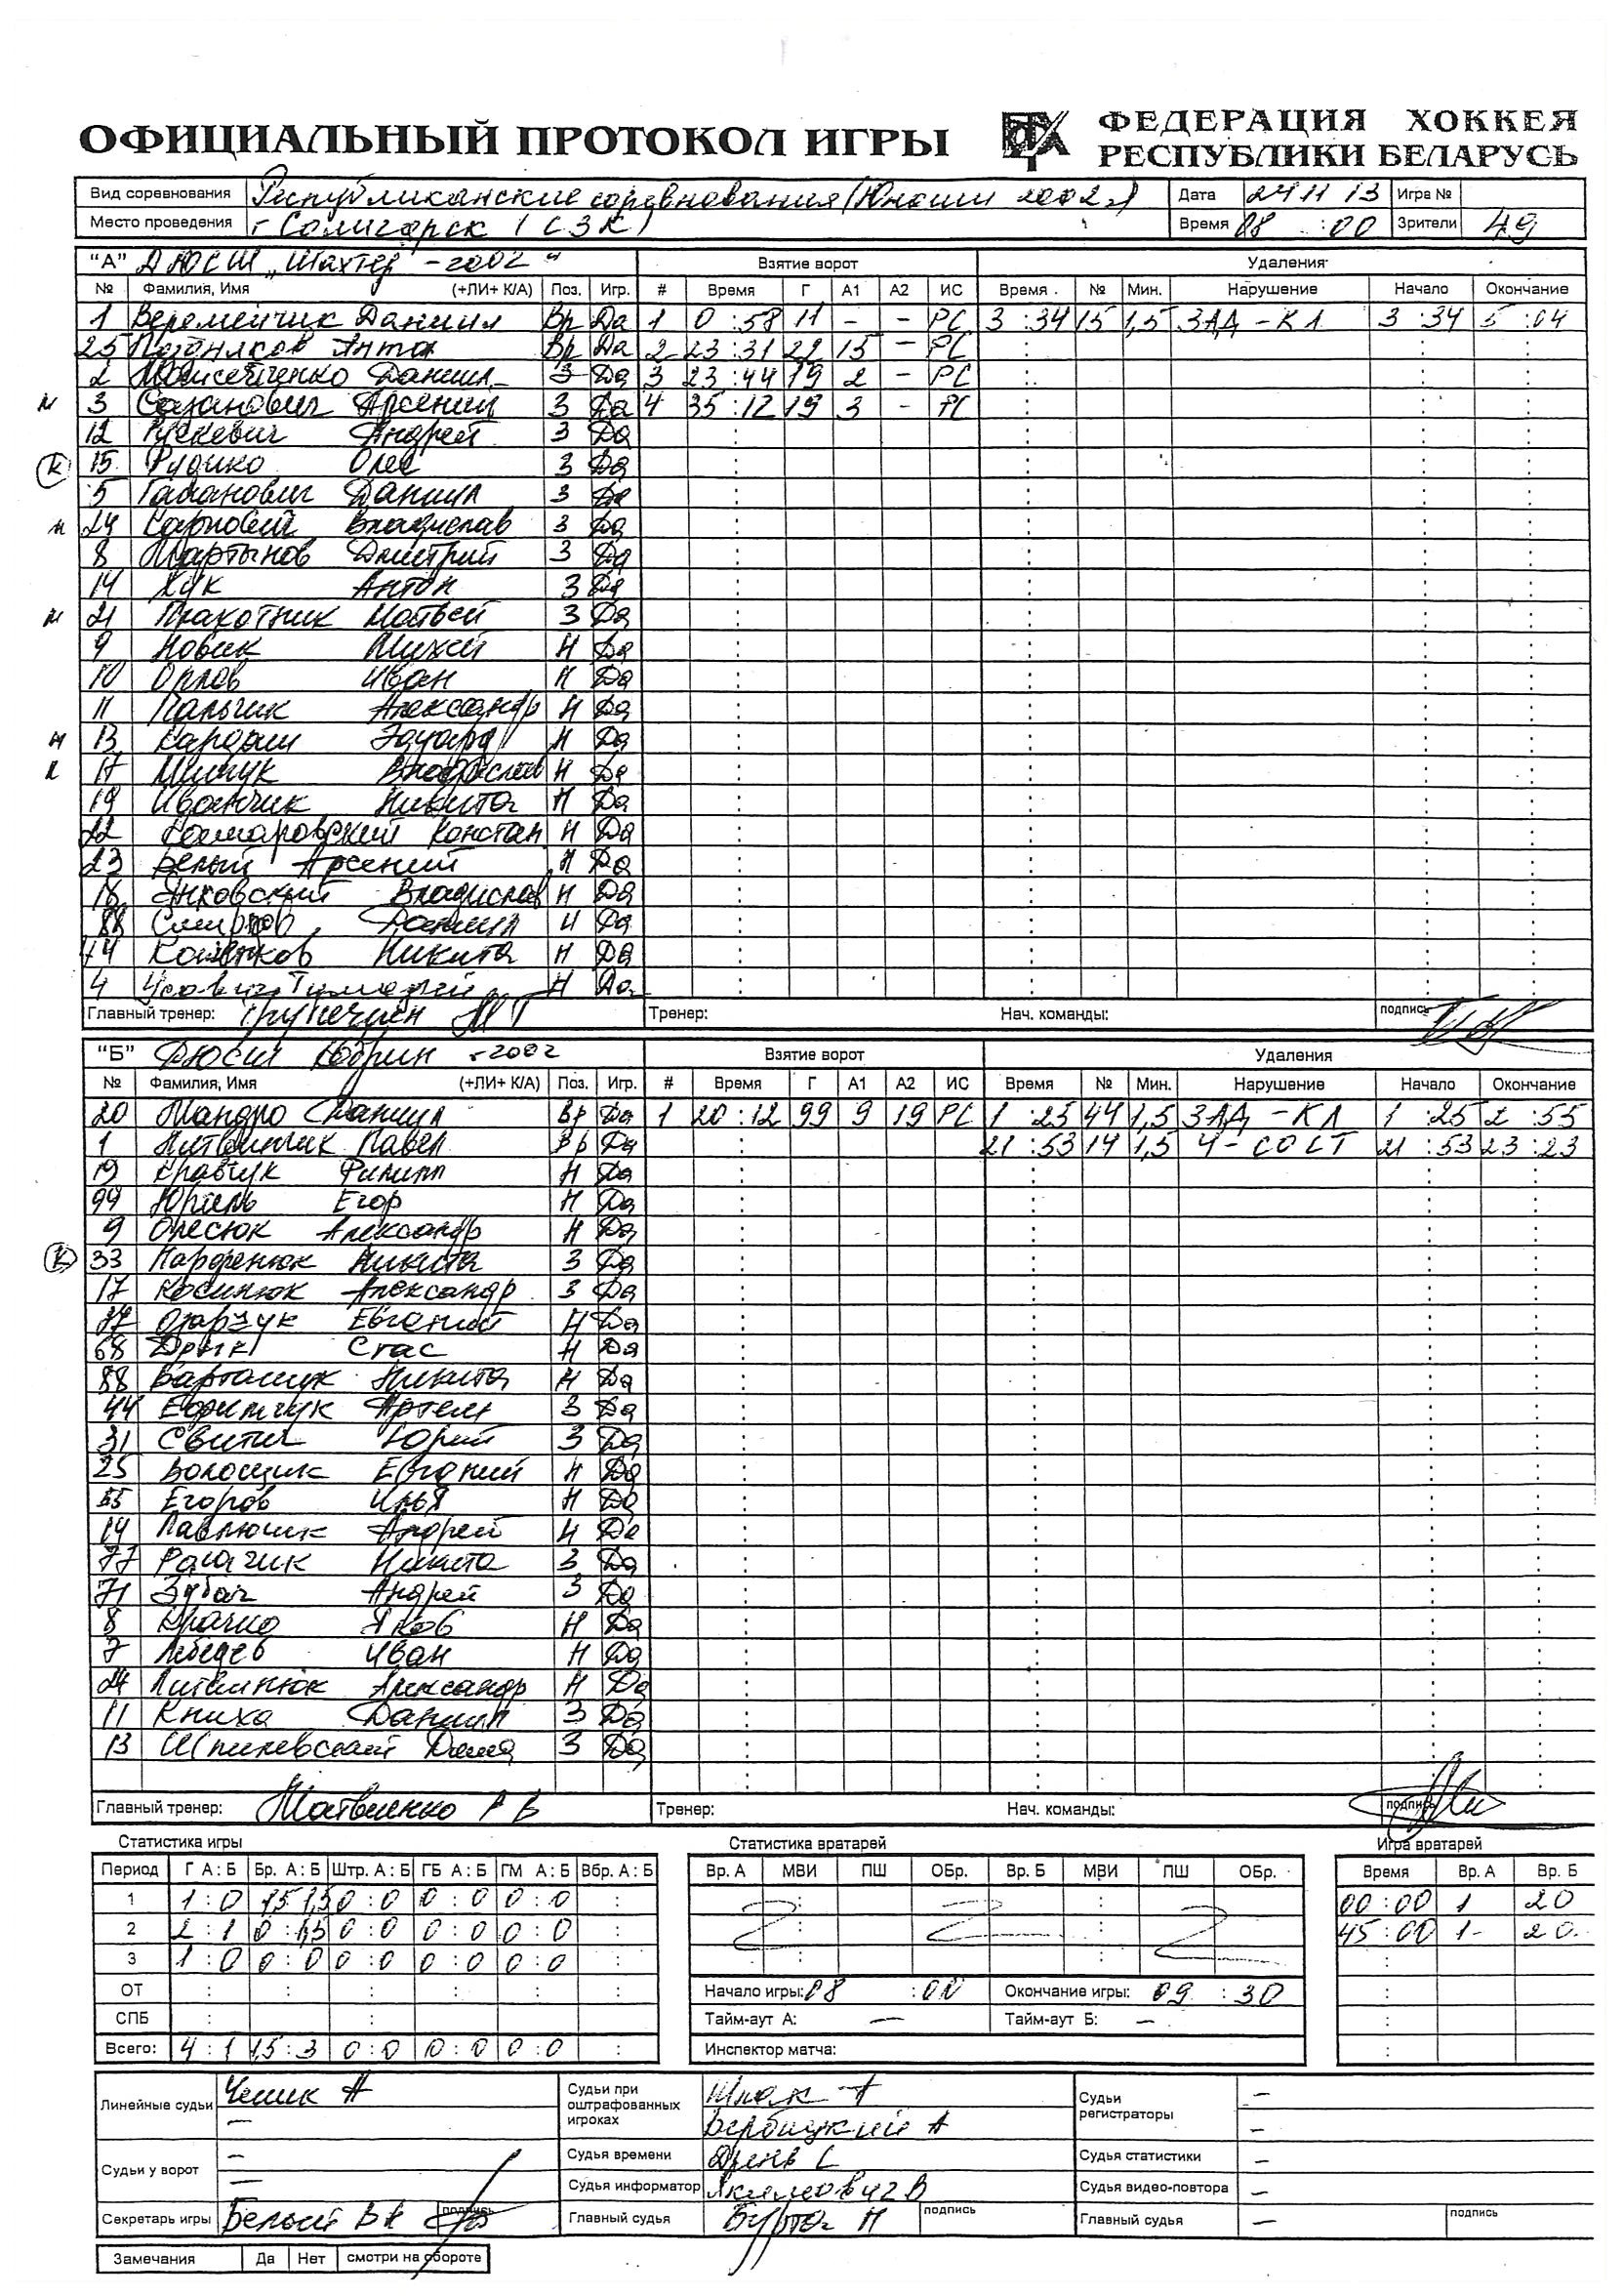 ОФИЦИАЛЬНЫЙ ПРОТОКОЛ ИГРЫ ФЕДЕРАЦИЯ ХОККЕЯ РЕСПУБЛИКИ БЕЛАРУСЬ
Вид соревнования Республиканские соревнования (Юноши 2002г) Дата 24 11 13 Игра №
Место проведения г Солигорск (СЗК) Время 08 : 00 Зрители 49
"А" ДЮСШ „Шахтер -2002" Взятие ворот Удаления
№ Фамилия, Имя (+ЛИ+ К/А) Поз. Игр. # Время Г А1 А2 ИС Время № Мин. Нарушение Начало Окончание
1 Веремейчик Даниил Вр Да 1 0 :58 11 - - РС 3 :34 15 1,5 ЗАД - КЛ 3 :34 5 :04
25 Поздняков Антон Вр Да 2 23 :31 22 15 - РС
2 Моисеенко Даниил З Да 3 23 :44 19 2 - РС
3 Сазанович Арсений З Да 4 35 :12 19 3 - РС
12 Рускевич Андрей З Да
К 15 Рудико Олег З Да
5 Гаманович Даниил З Да
24 Карпович Владислав З Да
8 Мартынов Дмитрий З Да
14 Хук Антон З Да
21 Плахотник Матвей З Да
9 Новик Михей Н Да
10 Орлов Иван Н Да
11 Пальчик Александр Н Да
13 Эдуард Н Да
17 Владислав Н Да
19 Иванчик Никита Н Да
22 Комаровский Констан Н Да
23 Белый Арсений Н Да
18 Янковский Владислав Н Да
88 Смирнов Даниил Н Да
Никита Н Да
4 Усович Тимофей Н Да
Главный тренер: Тренер: Нач. команды: подпись
"Б" ДЮСШ Кобрин -2002 Взятие ворот Удаления
№ Фамилия, Имя (+ЛИ+ К/А) Поз. Игр. # Время Г А1 А2 ИС Время № Мин. Нарушение Начало Окончание
20 Мандро Даниил Вр Да 1 20 :12 99 9 19 РС 1 :25 44 1,5 ЗАД - КЛ 1 :25 2 :55
1 Литвинчик Павел Вр Да 21 :53 14 1,5 Ч - СОСТ 21 :53 23 :23
19 Кравчук Филипп Н Да
99 Юрель Егор Н Да
9 Олесюк Александр Н Да
К 33 Парфенюк Никита З Да
17 Косинюк Александр З Да
Евгений Н Да
68 Дрик Стас Н Да
88 Варташук Никита Н Да
44 Ефимчук Артем З Да
31 Свитич Юрий З Да
25 Волосщик Евгений Н Да
55 Егоров Илья Н Да
14 Павлючик Андрей Н Да
77 Рагачик Никита З Да
71 Зубач Андрей З Да
8 Драчко Яков Н Да
7 Лебедев Иван Н Да
24 Литвинюк Александр Н Да
11 Книха Даниил З Да
13 Шпилевский Дима З Да
Главный тренер: Матвиенко Р В Тренер: Нач. команды: подпись
Статистика игры Статистика вратарей Игра вратарей
Период Г А : Б Бр. А : Б Штр. А : Б ГБ А : Б ГМ А : Б Вбр. А : Б Вр. А МВИ ПШ ОБр. Вр. Б МВИ ПШ ОБр. Время Вр. А Вр. Б
1 1 : 0 1,5 1,5 0 : 0 0 : 0 0 : 0 : 00 : 00 1 20
2 2 : 1 0 : 1,5 0 : 0 0 : 0 0 : 0 : 45 : 00 1 20
3 1 : 0 0 : 0 0 : 0 0 : 0 0 : 0 :
ОТ Начало игры: 08 : 00 Окончание игры: 09 : 30
СПБ Тайм-аут А: — Тайм-аут Б: —
Всего: 4 : 1 1,5 : 3 0 : 0 0 : 0 0 : 0 : Инспектор матча:
Линейные судьи Чешик А Судьи при оштрафованных игроках Шпак А Судьи регистраторы —
— Вербицкий А —
Судьи у ворот — Судья времени Дрень С Судья статистики —
— Судья информатор Якимович В Судья видео-повтора —
Секретарь игры Белый В А подпись Главный судья Бурто Н подпись Главный судья — подпись
Замечания Да Нет смотри на обороте